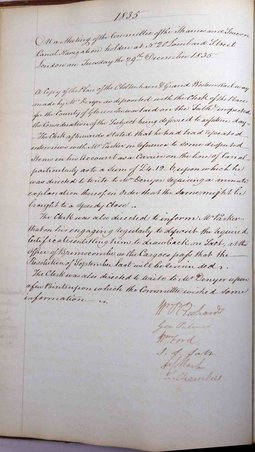 1835
At a Meeting of the Committee of the Thames and Severn
Canal Navigation holden at No. 21 Lombard Street
London on Tuesday the 29th December 1835
A Copy of the Plan of the Cheltenham & Great Western Railway
made by Mr as deposited with the Clerk of the Peace
for the County of Gloucester was on the Table
the Consideration of the Subject being deferred to a future day
The Clerk afterwards stated that he had had repeated
interviews with Mr Parker in reference to some disputed
Items in his Account as a Carrier on the line of Canal
particularly as to a Sum of £4.12. upon which he
was directed to write to Mr Denyer requiring a minute
explanation thereof in order that the same might be
brought to a speedy Close
The Clerk was also directed to inform Mr Parker
that on his engaging regularly to deposit the required
Certificate entitling him to drawback on Salt, at the
Office at Brimscombe as the Cargoes pass that the
Resolution of September last will be
The Clerk was also directed to write to Mr Denyer upon
a few Points upon which the Committee wished some
information
Wm
Ford
Chambers